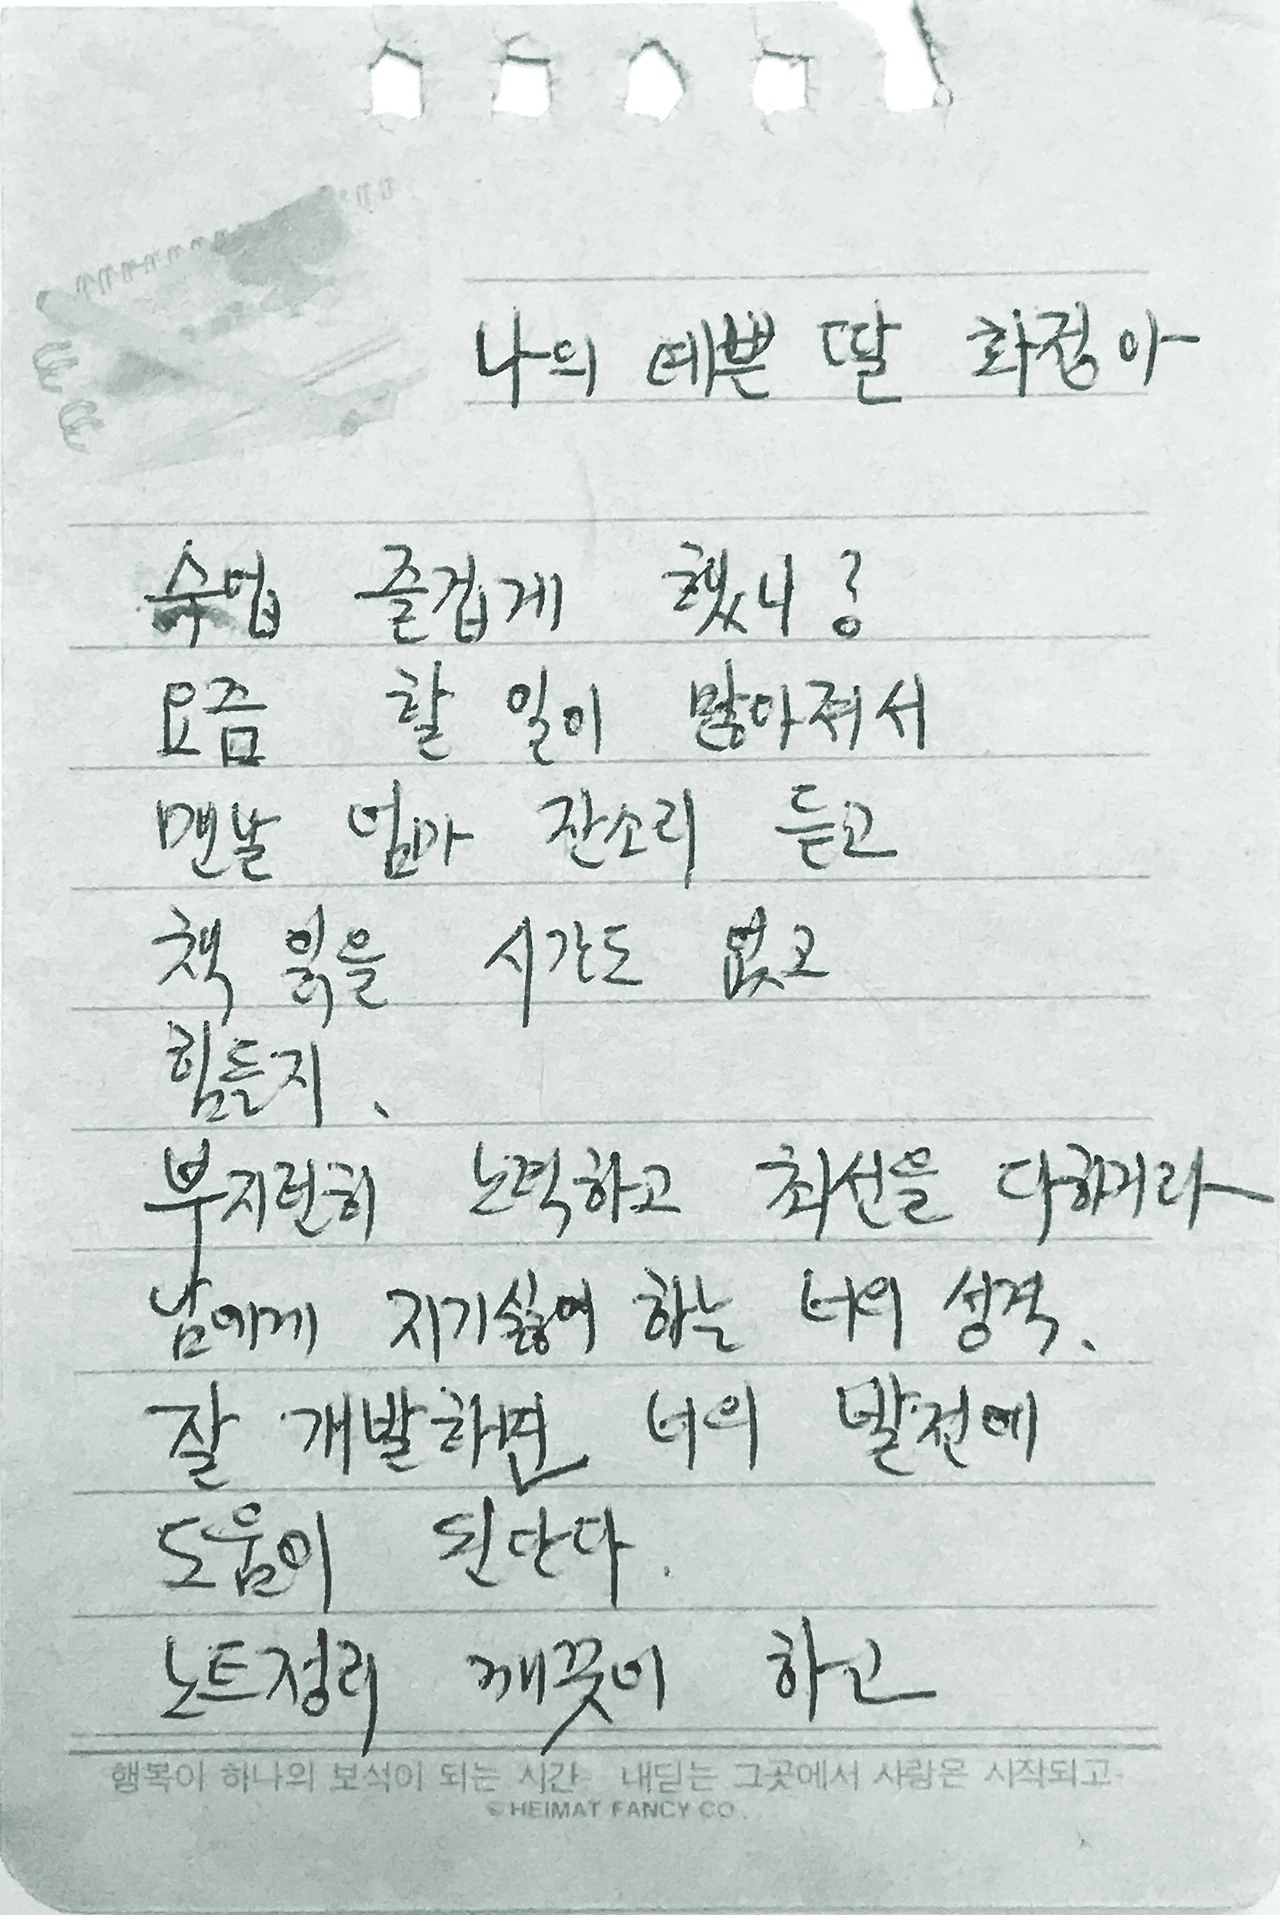 나의 예쁜 딸 화정아
수업 즐겁게 했니?
요즘 할 일이 많아져서
맨날 엄마 잔소리 듣고
책 읽을 시간도 없고
힘들지.
부지런히 노력하고 최선을 다하거라
남에게 지기싫어 하는 너의 성격.
잘 개발하면 너의 발전에
도움이 된단다.
노트정리 깨끗이 하고
행복이 하나의 보석이 되는 시간- 내딛는 그곳에서 사랑은 시작되고-
©HEIMAT FANCY CO.